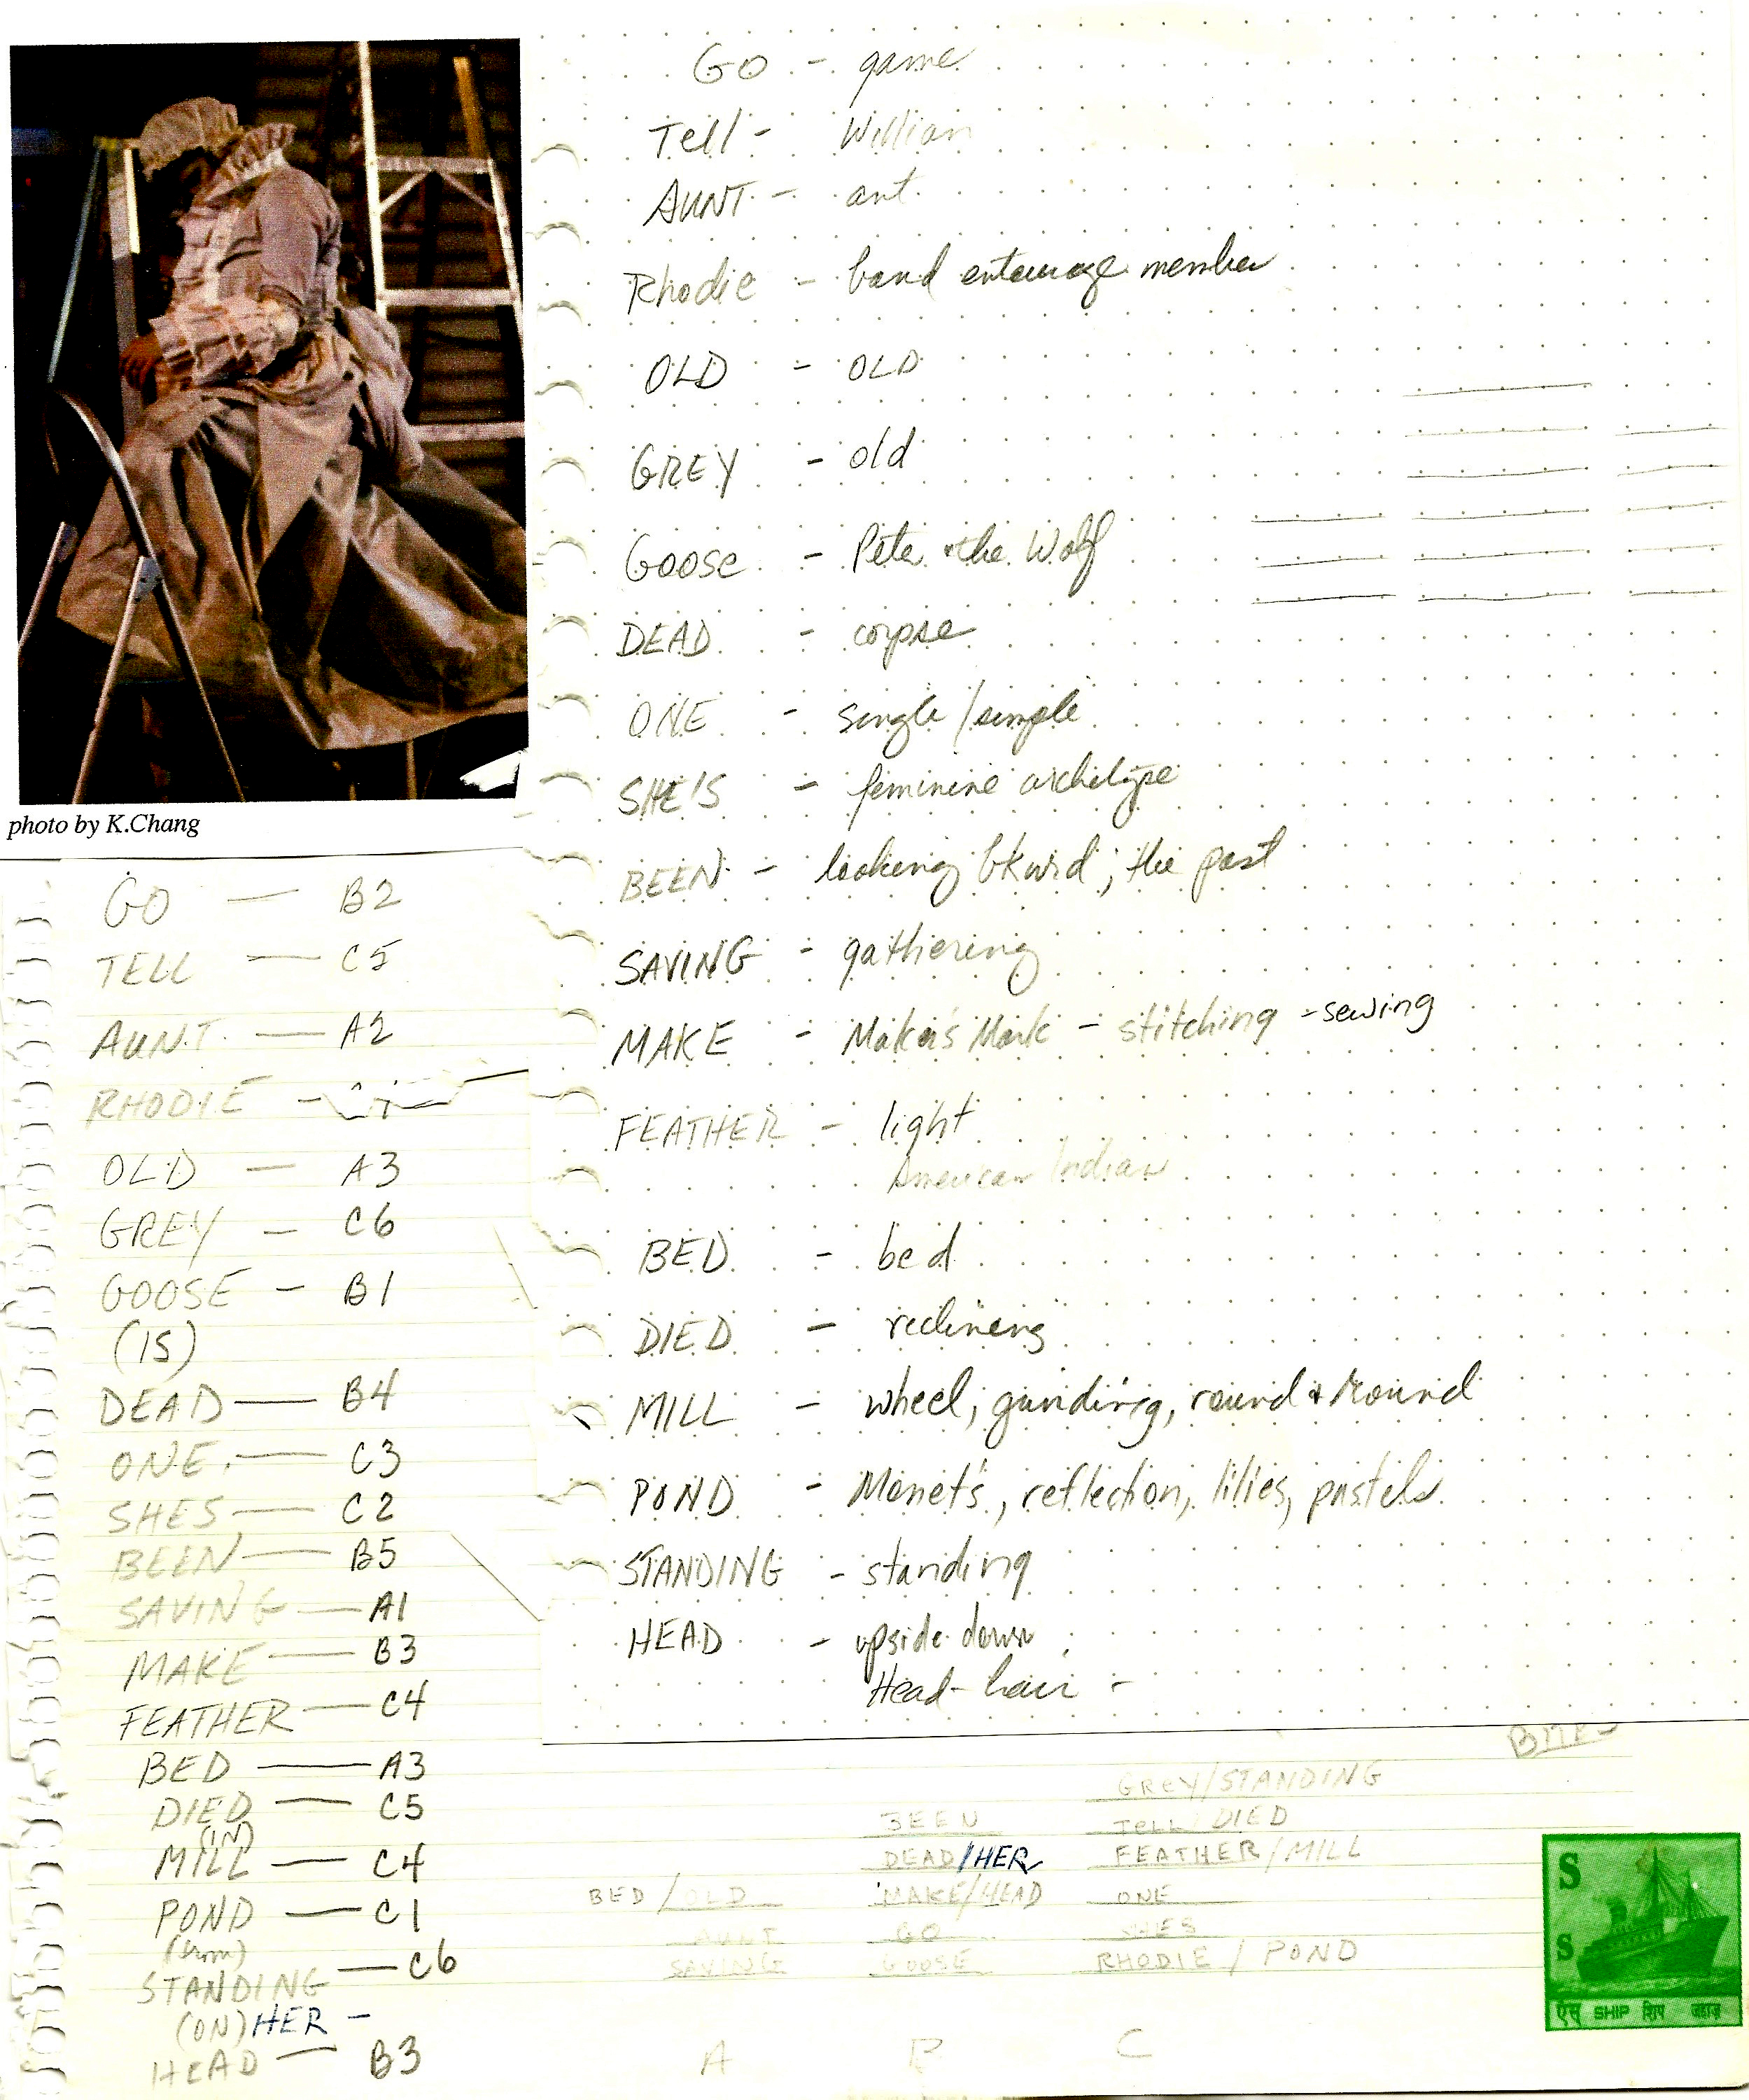 photo by K.Chang
GO - game
Tell - William
AUNT - ant
Rhodie - band entourage member
OLD - OLD
GREY - old
Goose - Pete & the Wolf
DEAD - corpse
ONE - single/simple
SHE'S - feminine archetype
BEEN - looking bkwrd; the past
SAVING - gathering
MAKE - Maker's Mark - stitching - sewing
FEATHER - light
American Indian
BED - bed
DIED - reclining
MILL - wheel, grinding, round & round
POND - Monet's, reflection, lilies, pastels
STANDING - standing
HEAD - upside down
Head - hair -
GO — B2
TELL — C5
AUNT — A2
RHODIE -
OLD — A3
GREY — C6
GOOSE - B1
(IS)
DEAD — B4
ONE — C3
SHES — C2
BEEN — B5
SAVING — A1
MAKE — B3
FEATHER — C4
BED — A3
DIED — C5
(IN)
MILL — C4
POND — C1
(from)
STANDING — C6
(ON) HER -
HEAD — B3
GREY/STANDING
BEEN TELL/DIED
DEAD/HER FEATHER/MILL
BED/OLD MAKE/HEAD ONE
AUNT GO SHES
SAVING GOOSE RHODIE / POND
A B C
S
S
एस् SHIP शिप जहाज़